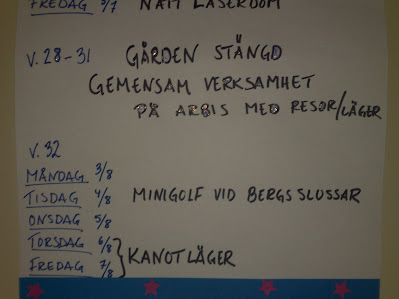 FREDAG 3/7 NATT LASERDOM
V. 28-31 GÅRDEN STÄNGD
GEMENSAM VERKSAMHET
PÅ ARBIS MED RESOR/LÄGER
V. 32
MÅNDAG 3/8
TISDAG 4/8 MINIGOLF VID BERGS SLUSSAR
ONSDAG 5/8
TORSDAG 6/8
FREDAG 7/8 } KANOTLÄGER